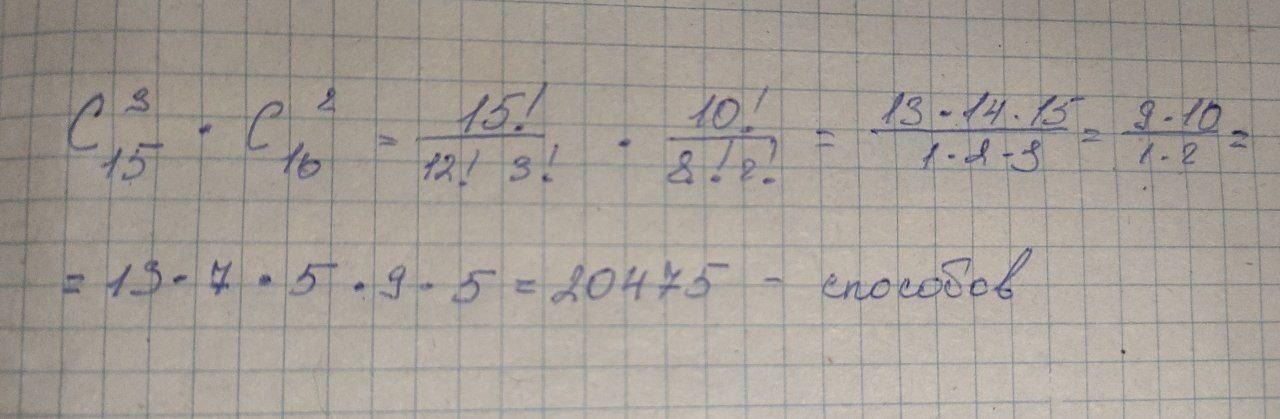 C³₁₅ · C²₁₀ = 15!/(12! 3!) · 10!/(8! 2!) = (13 · 14 · 15)/(1 · 2 · 3) = (9 · 10)/(1 · 2) =
= 13 · 7 · 5 · 9 · 5 = 20475 - способов